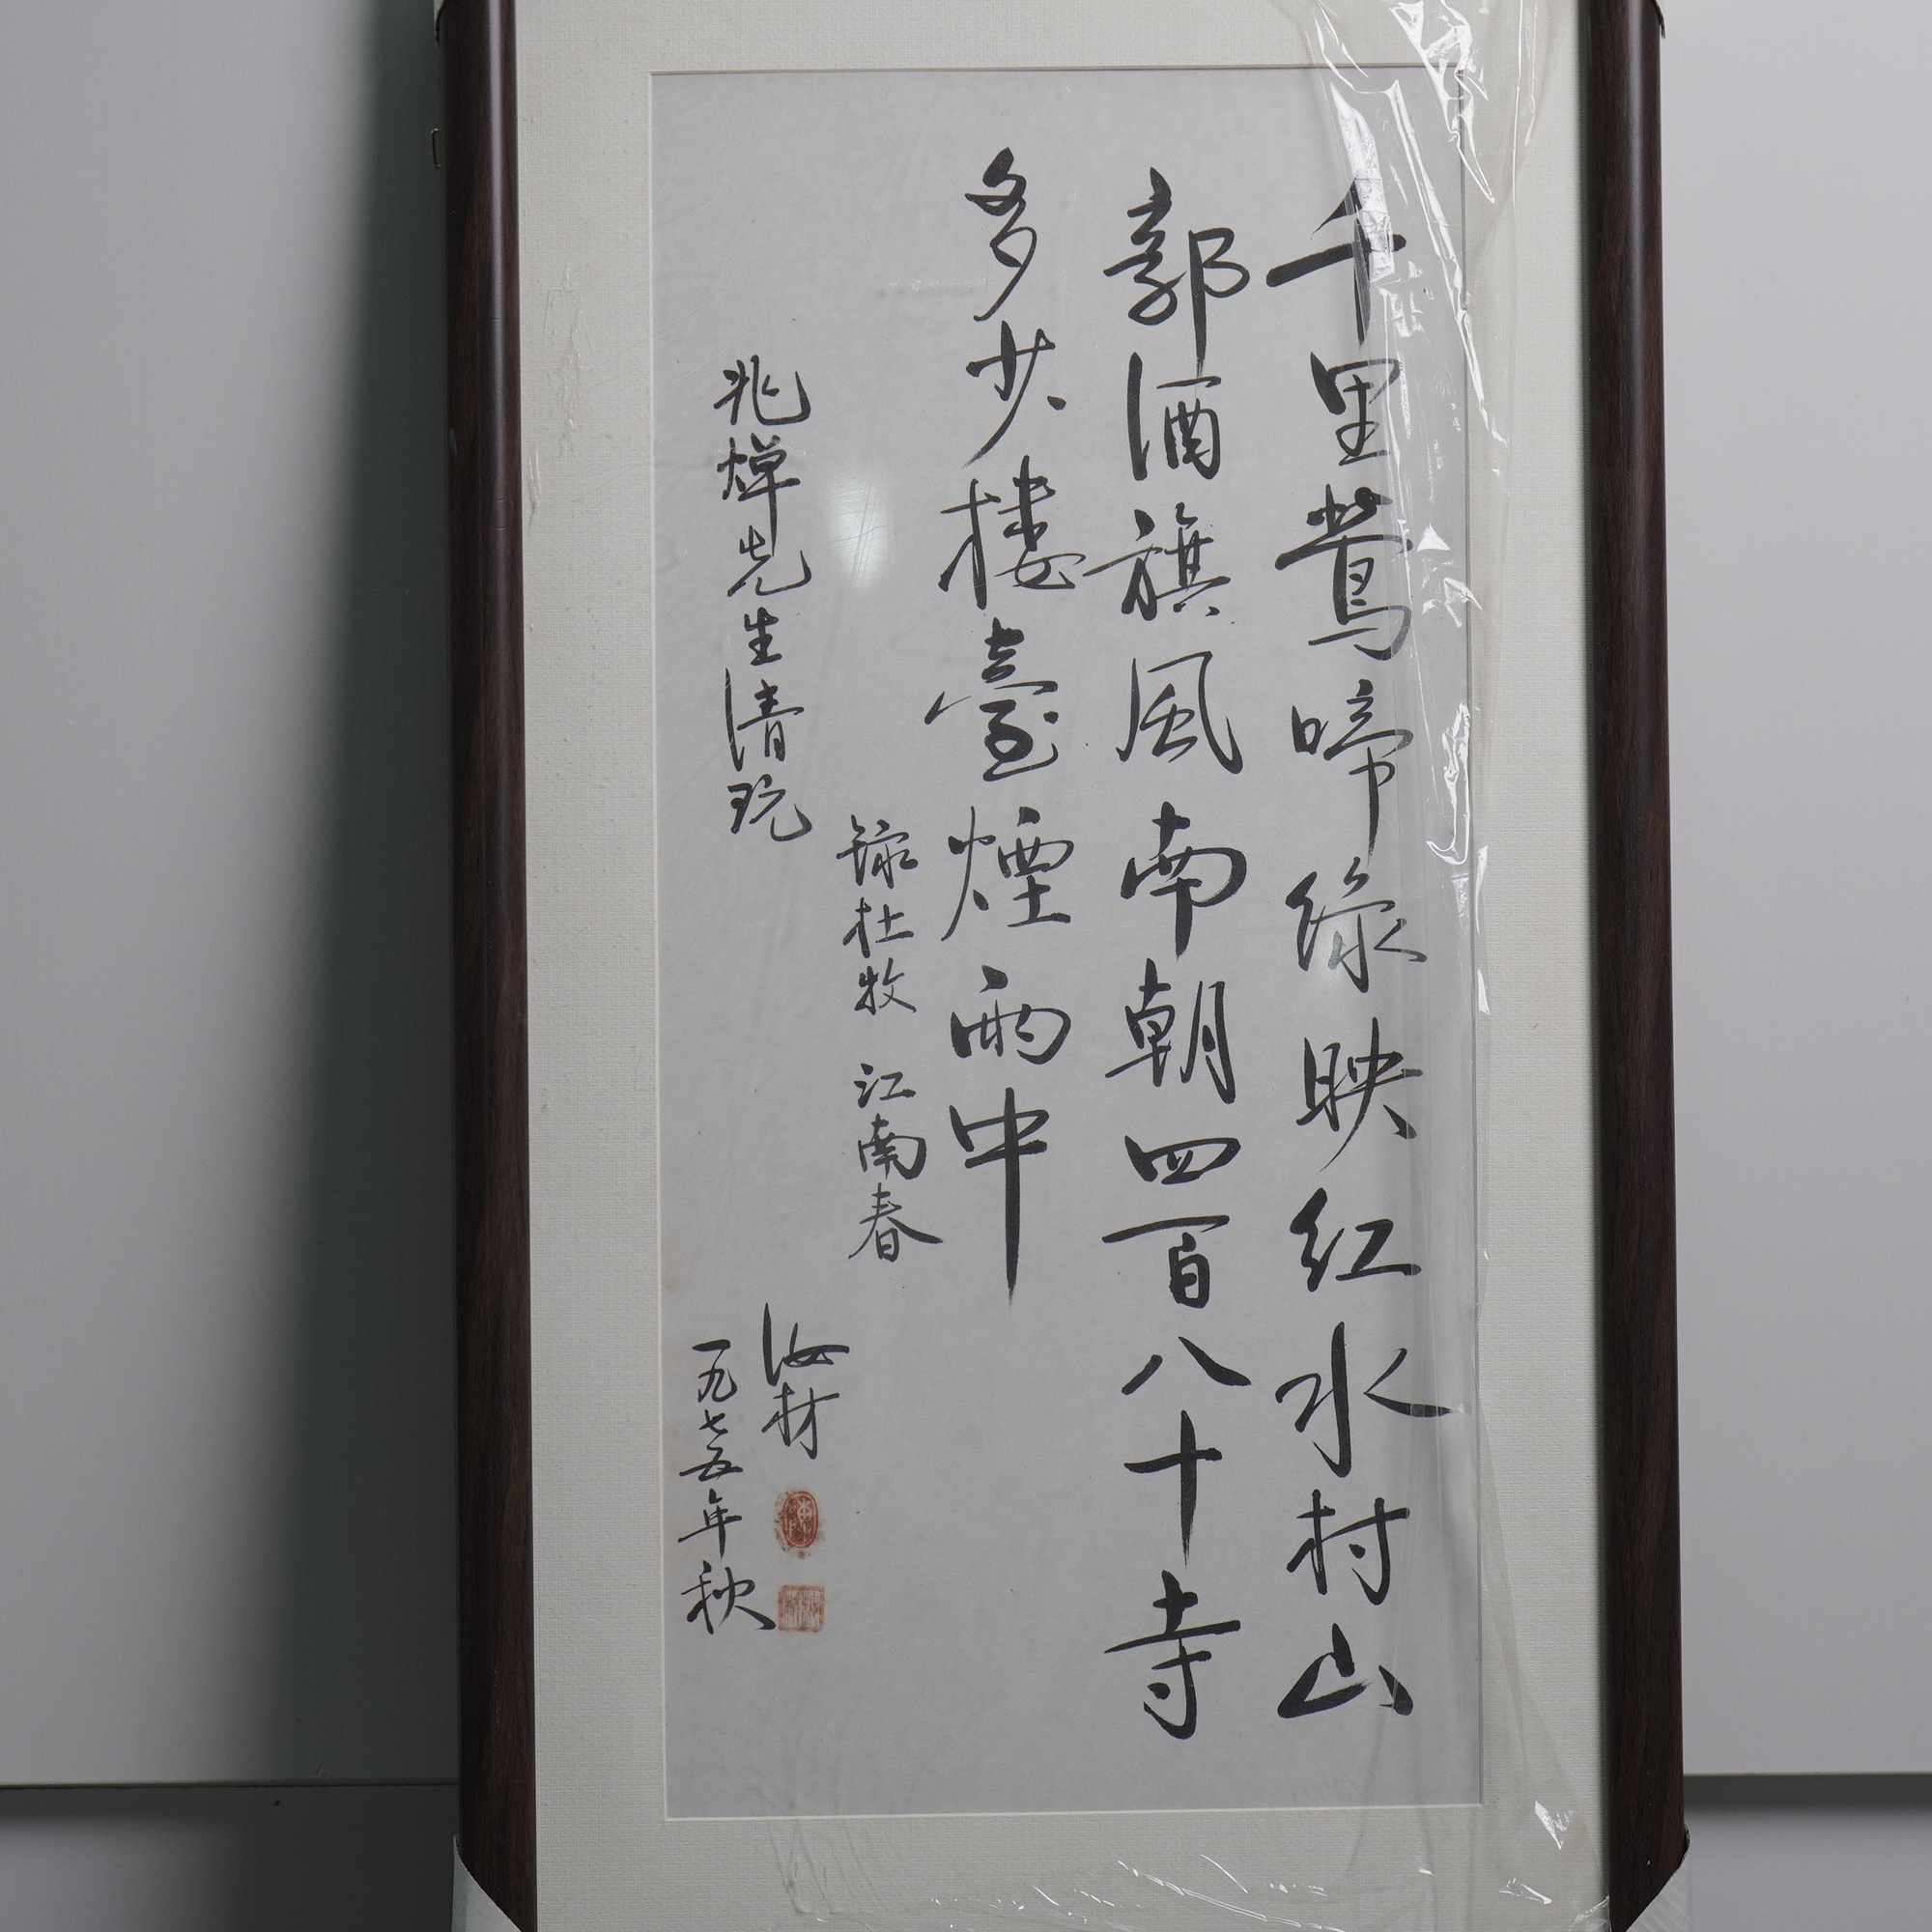 千里鶯啼綠映紅水村山
郭酒旗風南朝四百八十寺
多少樓臺煙雨中
錄杜牧 江南春
兆燁先生清玩
汝材
一九七五年秋